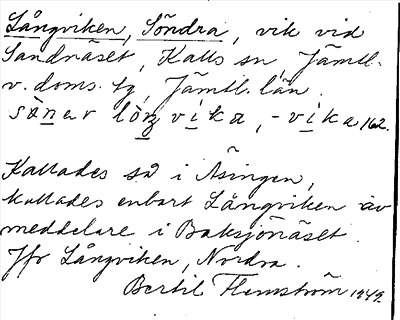 Långviken, Söndra, vik vid
Sandnäset, Kalls sn, Jämtl.
v. doms. tg, Jämtl. län.
sö̀nər lòŋvika, -vika 162.
Kallades så i Äsingen,
kallades enbart Långviken av
meddelare i Baksjönäset.
Jfr Långviken, Nordra.
Bertil Flemström 1942.